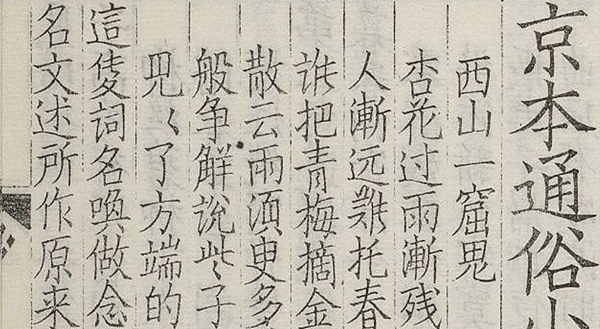 京本通俗小
西山一窟鬼
杏花过雨漸残
人漸远難托春
誰把青梅摘金
散云雨湏臾多
般争解說些子
見〻了方端的
這隻詞名喚做念
名文述所作原来